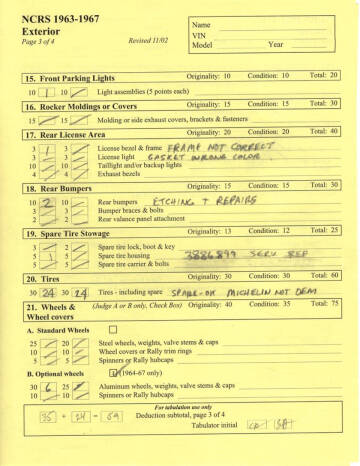 NCRS 1963-1967
Exterior
Page 3 of 4 Revised 11/02
Name
VIN
Model Year
15. Front Parking Lights Originality: 10 Condition: 10 Total: 20
10 1 10 Light assemblies (5 points each)
16. Rocker Moldings or Covers Originality: 15 Condition: 15 Total: 30
15 15 Molding or side exhaust covers, brackets & fasteners
17. Rear License Area Originality: 20 Condition: 20 Total: 40
3 1 3 License bezel & frame FRAME NOT CORRECT
3 3 License light GASKET WRONG COLOR
10 10 Taillight and/or backup lights
4 4 Exhaust bezels
18. Rear Bumpers Originality: 15 Condition: 15 Total: 30
10 2 10 Rear bumpers ETCHING + REPAIRS
3 3 Bumper braces & bolts
2 2 Rear valance panel attachment
19. Spare Tire Stowage Originality: 13 Condition: 12 Total: 25
3 2 Spare tire lock, boot & key
5 1 5 Spare tire housing 3886899 SERV REP
5 5 Spare tire carrier & bolts
20. Tires Originality: 30 Condition: 30 Total: 60
30 24 30 24 Tires - including spare SPARE-OK MICHELIN NOT OEM
21. Wheels & Wheel covers (Judge A or B only, Check Box) Originality: 40 Condition: 35 Total: 75
A. Standard Wheels
25 20 Steel wheels, weights, valve stems & caps
10 10 Wheel covers or Rally trim rings
5 5 Spinners or Rally hubcaps
B. Optional wheels (1964-67 only)
30 6 25 Aluminum weights, weights, valve stems & caps
10 10 Spinners or Rally hubcaps
For tabulation use only
35 + 24 = 59 Deduction subtotal, page 3 of 4
Tabulator initial